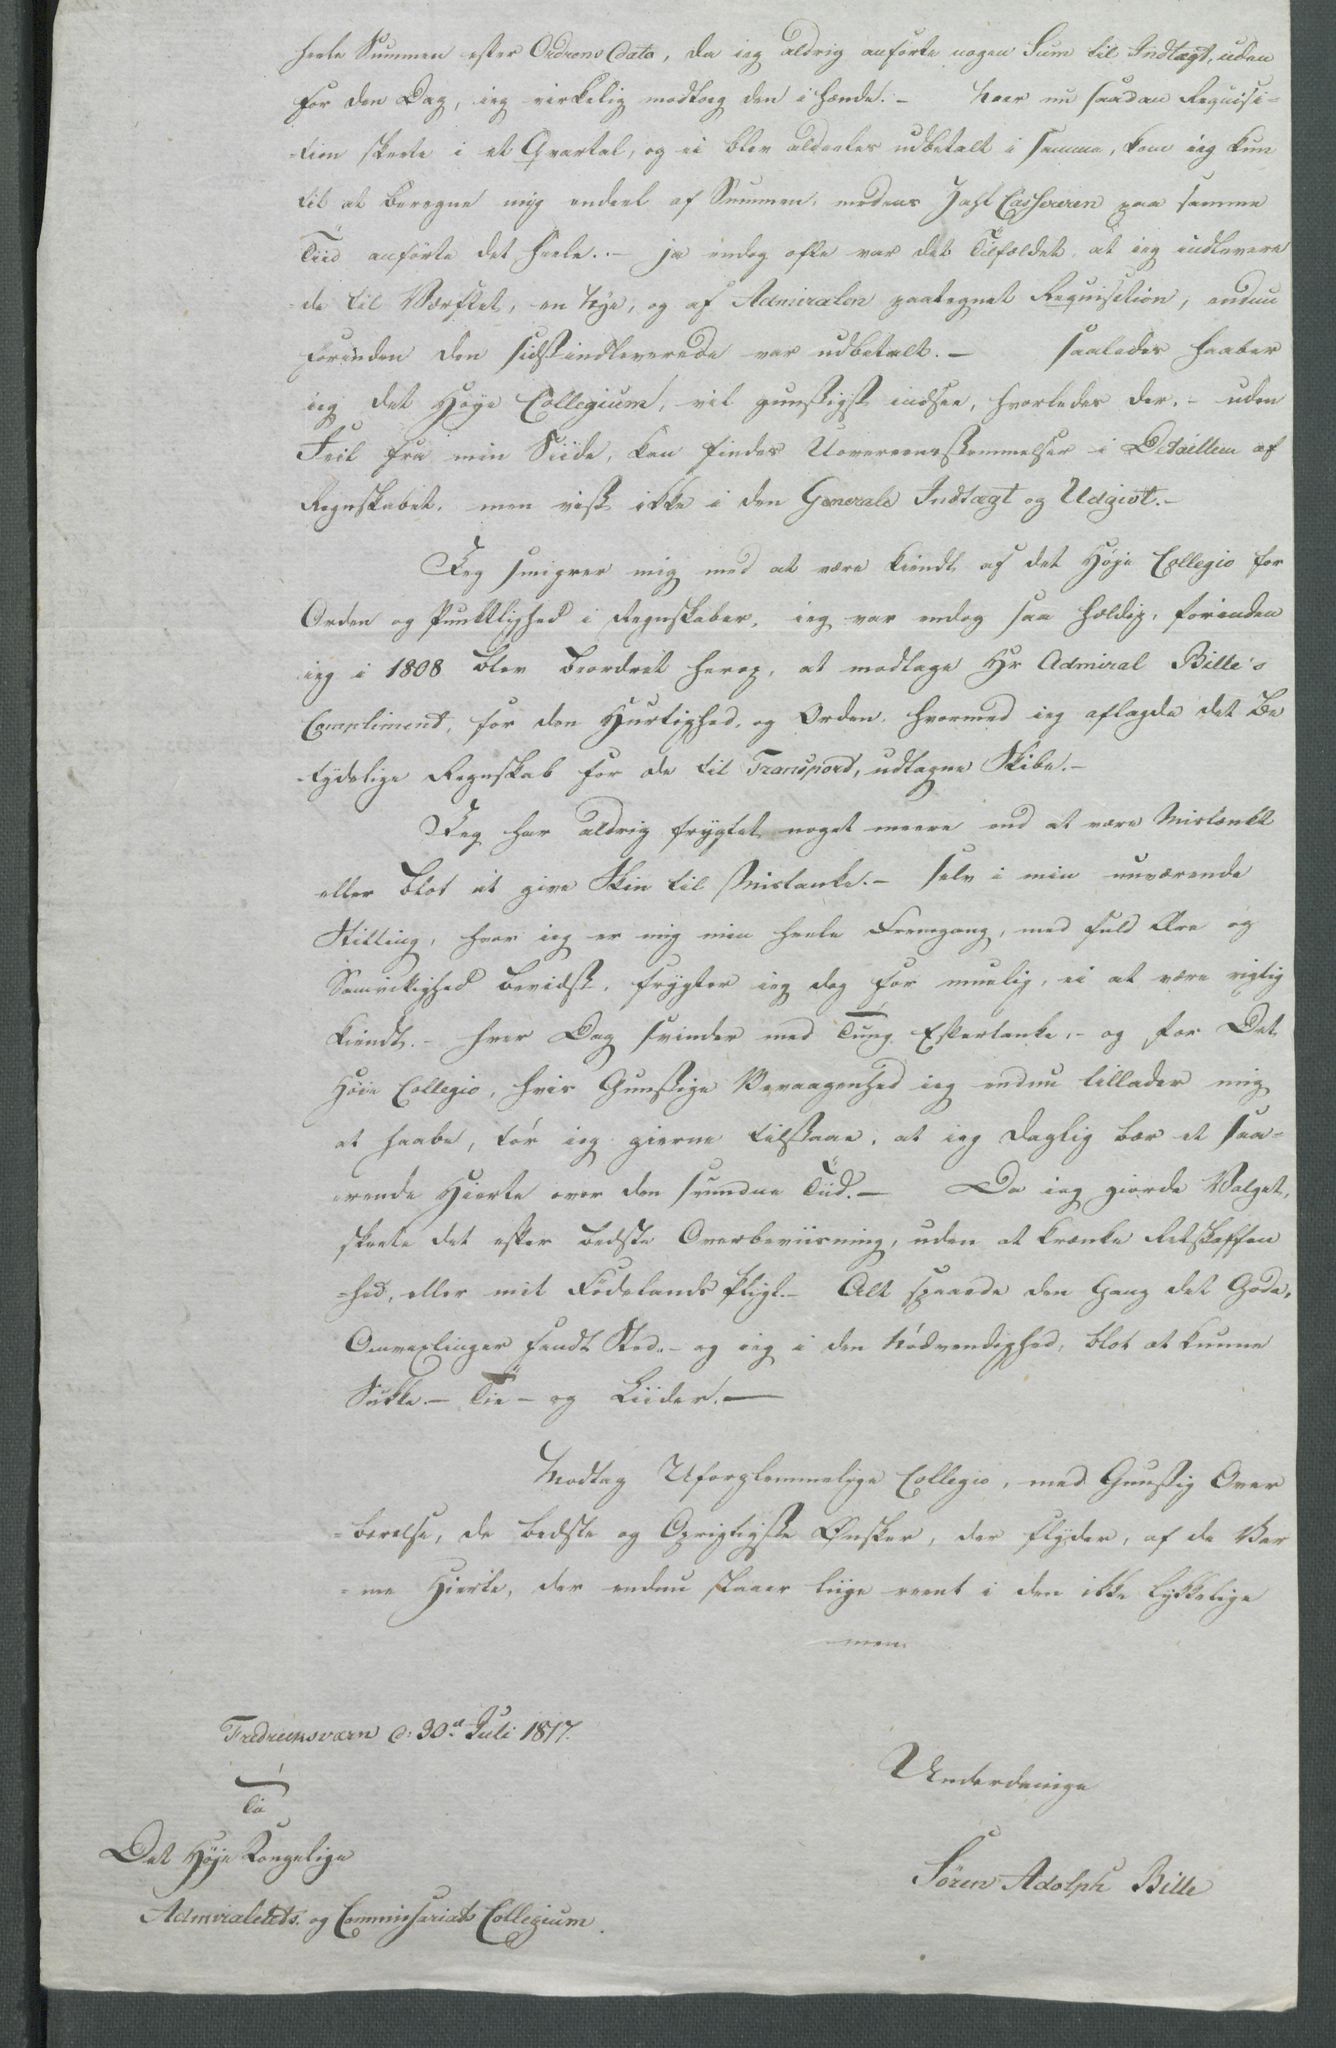 heele Summen efter Ordrens Dato, da ieg aldrig anførte nogen Sum til Indtægt, uden
for den Dag, ieg virkelig modtog den i Hænde. – Naar nu saadan Requisi-
-tion skeete i et Qvartal, og ei blev aldeeles udbetalt i samme, kom ieg kun
til at beregne mig endeel af Summen, medens Zahl Cassereren paa samme
Tiid anførte det heele. – ja endog ofte var det Tilfældet, at ieg indlevere
-de til Værftet, en Nye, og af Admiralen paategnet Requisition, endnu
forinden den sidstindleverede var udbetalt. – Saaledes haaber
ieg det Høye Collegium, vil gunstigst indsee, hvorledes der, – uden
Feil fra min Siide, kan findes Uovereensstemmelser i Detaillen af
Regnskabet, men vist ikke i den Generale Indtægt og Udgivt. –
Jeg smigrer mig med at være kiendt af det Høje Collegio for
Orden og Punktlighed i Regnskaber, ieg var endog saa heldig, forinden
ieg i 1808 blev beordret herop, at modtage Hr Admiral Bille's
Compliment, for den Hurtighed, og Orden, hvormed ieg aflagde det be
-tydelige Regnskab for de til Transport, udtagne Skibe. –
Jeg har aldrig frygtet noget meere end at være Mistænkt
eller blot at give Skin til Mistanke. – selv i min nuværende
Stilling, hvor ieg er mig min heele Fremgang, med fuld Ære og
Samvittighed bevidst, frygter ieg dog for muelig, ei at være rigtig
kiendt. – Hver Dag svinder med Tung Eftertanke, – og for Det
Høie Collegio, hvis Gunstige Bevaagenhed ieg endnu tillader mig
at haabe, tør ieg gierne tilstaae, at ieg daglig bær et saa-
-rende Hierte over den svundne Tiid. – Da ieg giorde Valget,
skeete det efter bedste Overbeviisning, uden at krænke Retskaffen
-hed, eller mit Fødelands Pligt. – Alt spaaede den Gang det Gode,
Omvexlinger fandt Sted. – og ieg i den Nødvendighed, blot at kunne
Sukke. – Tie – og Liider. –
Modtag Uforglemmelige Collegio, med Gunstig Over
-bærelse, de bedste og Oprigtigste Ønsker, der flyder, af de Var
-me Hierte, der endnu slaaer liige reent i den ikke lykkelige
men.
Fredricksværn d: 30.te Juli 1817.
Underdanige
Til
Det Høje Kongelige
Sören Adolph Bille
Admiralitets- og Commissariats Collegium.